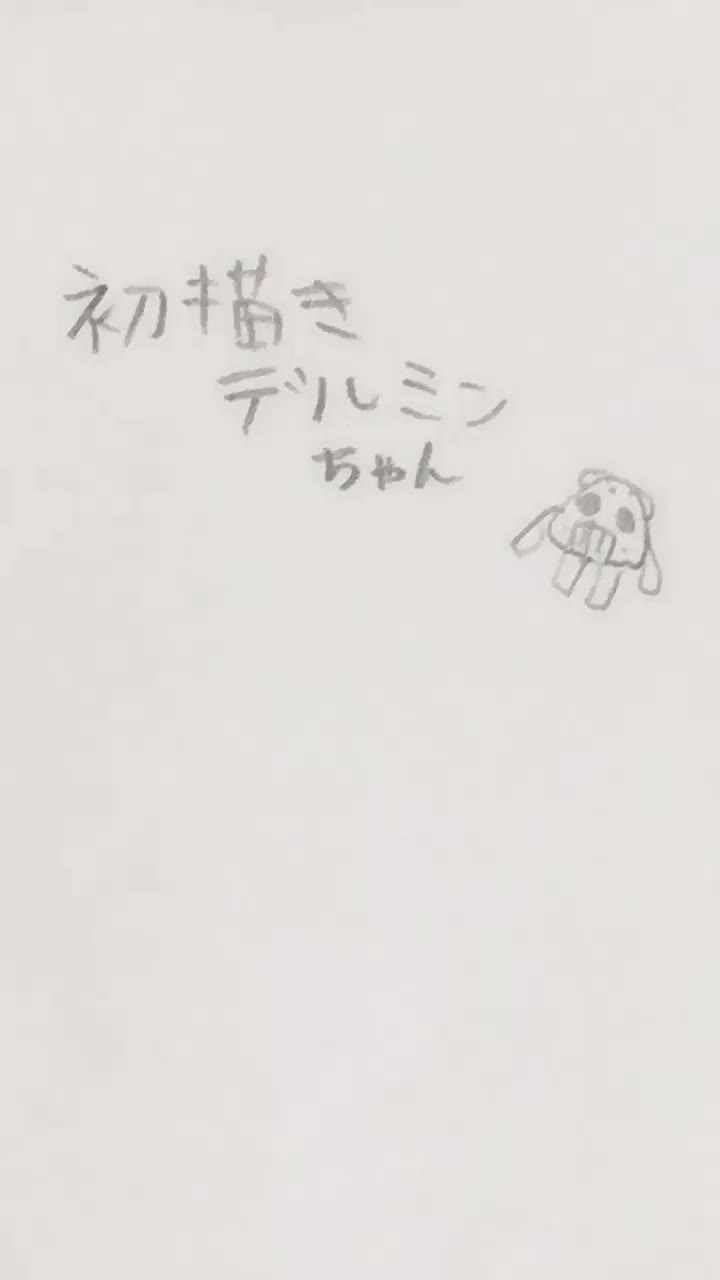 初描き
デルミン
ちゃん